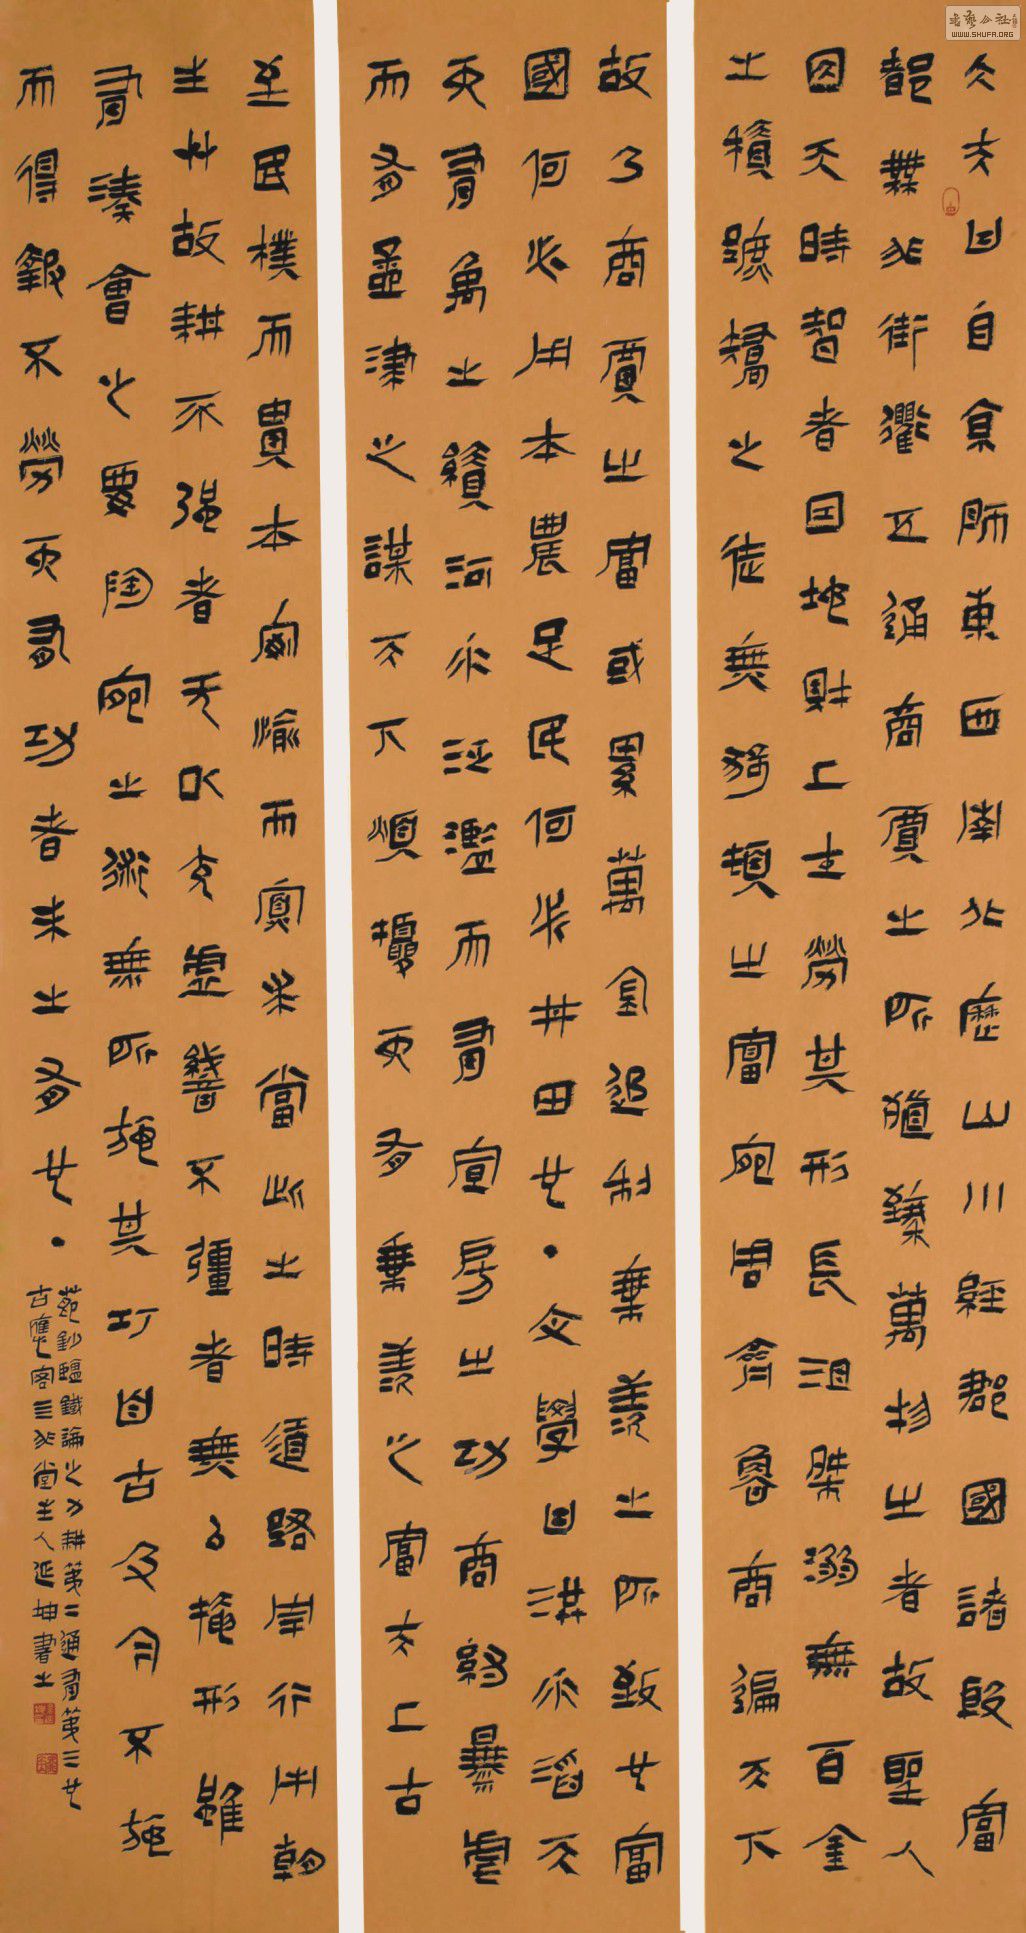 大夫曰自京師東西南北歷山川經郡國諸殷富
都無非街衢五通商賈之所殖臻萬物之者故聖人
因天時智者因地財上士勞其形長沮桀溺無百金
之積蹠蹻之徒無猗頓之富宛周齊魯商遍天下
故乃商賈之富或累萬金追利乘羡之所致也富
國何必用本農足民何必井田也·文學曰洪水滔天
而有禹之績河水泛濫而有宣房之功商紂暴虐
而有孟津之謀天下煩擾而有乘羡之富夫上古
至民樸而貴本安愉而寡求當此之時道路罕行市朝
生艸故耕不強者无以充虛織不彊者無以掩形雖
有湊會之要陶宛之術無所施其巧自古及今不施
而得報不勞而有功者未之有也·
鈔鹽鐵論之力耕第二通有第三也
古客三非堂主人延坤書之
書藝公社
WWW.SHUFA.ORG